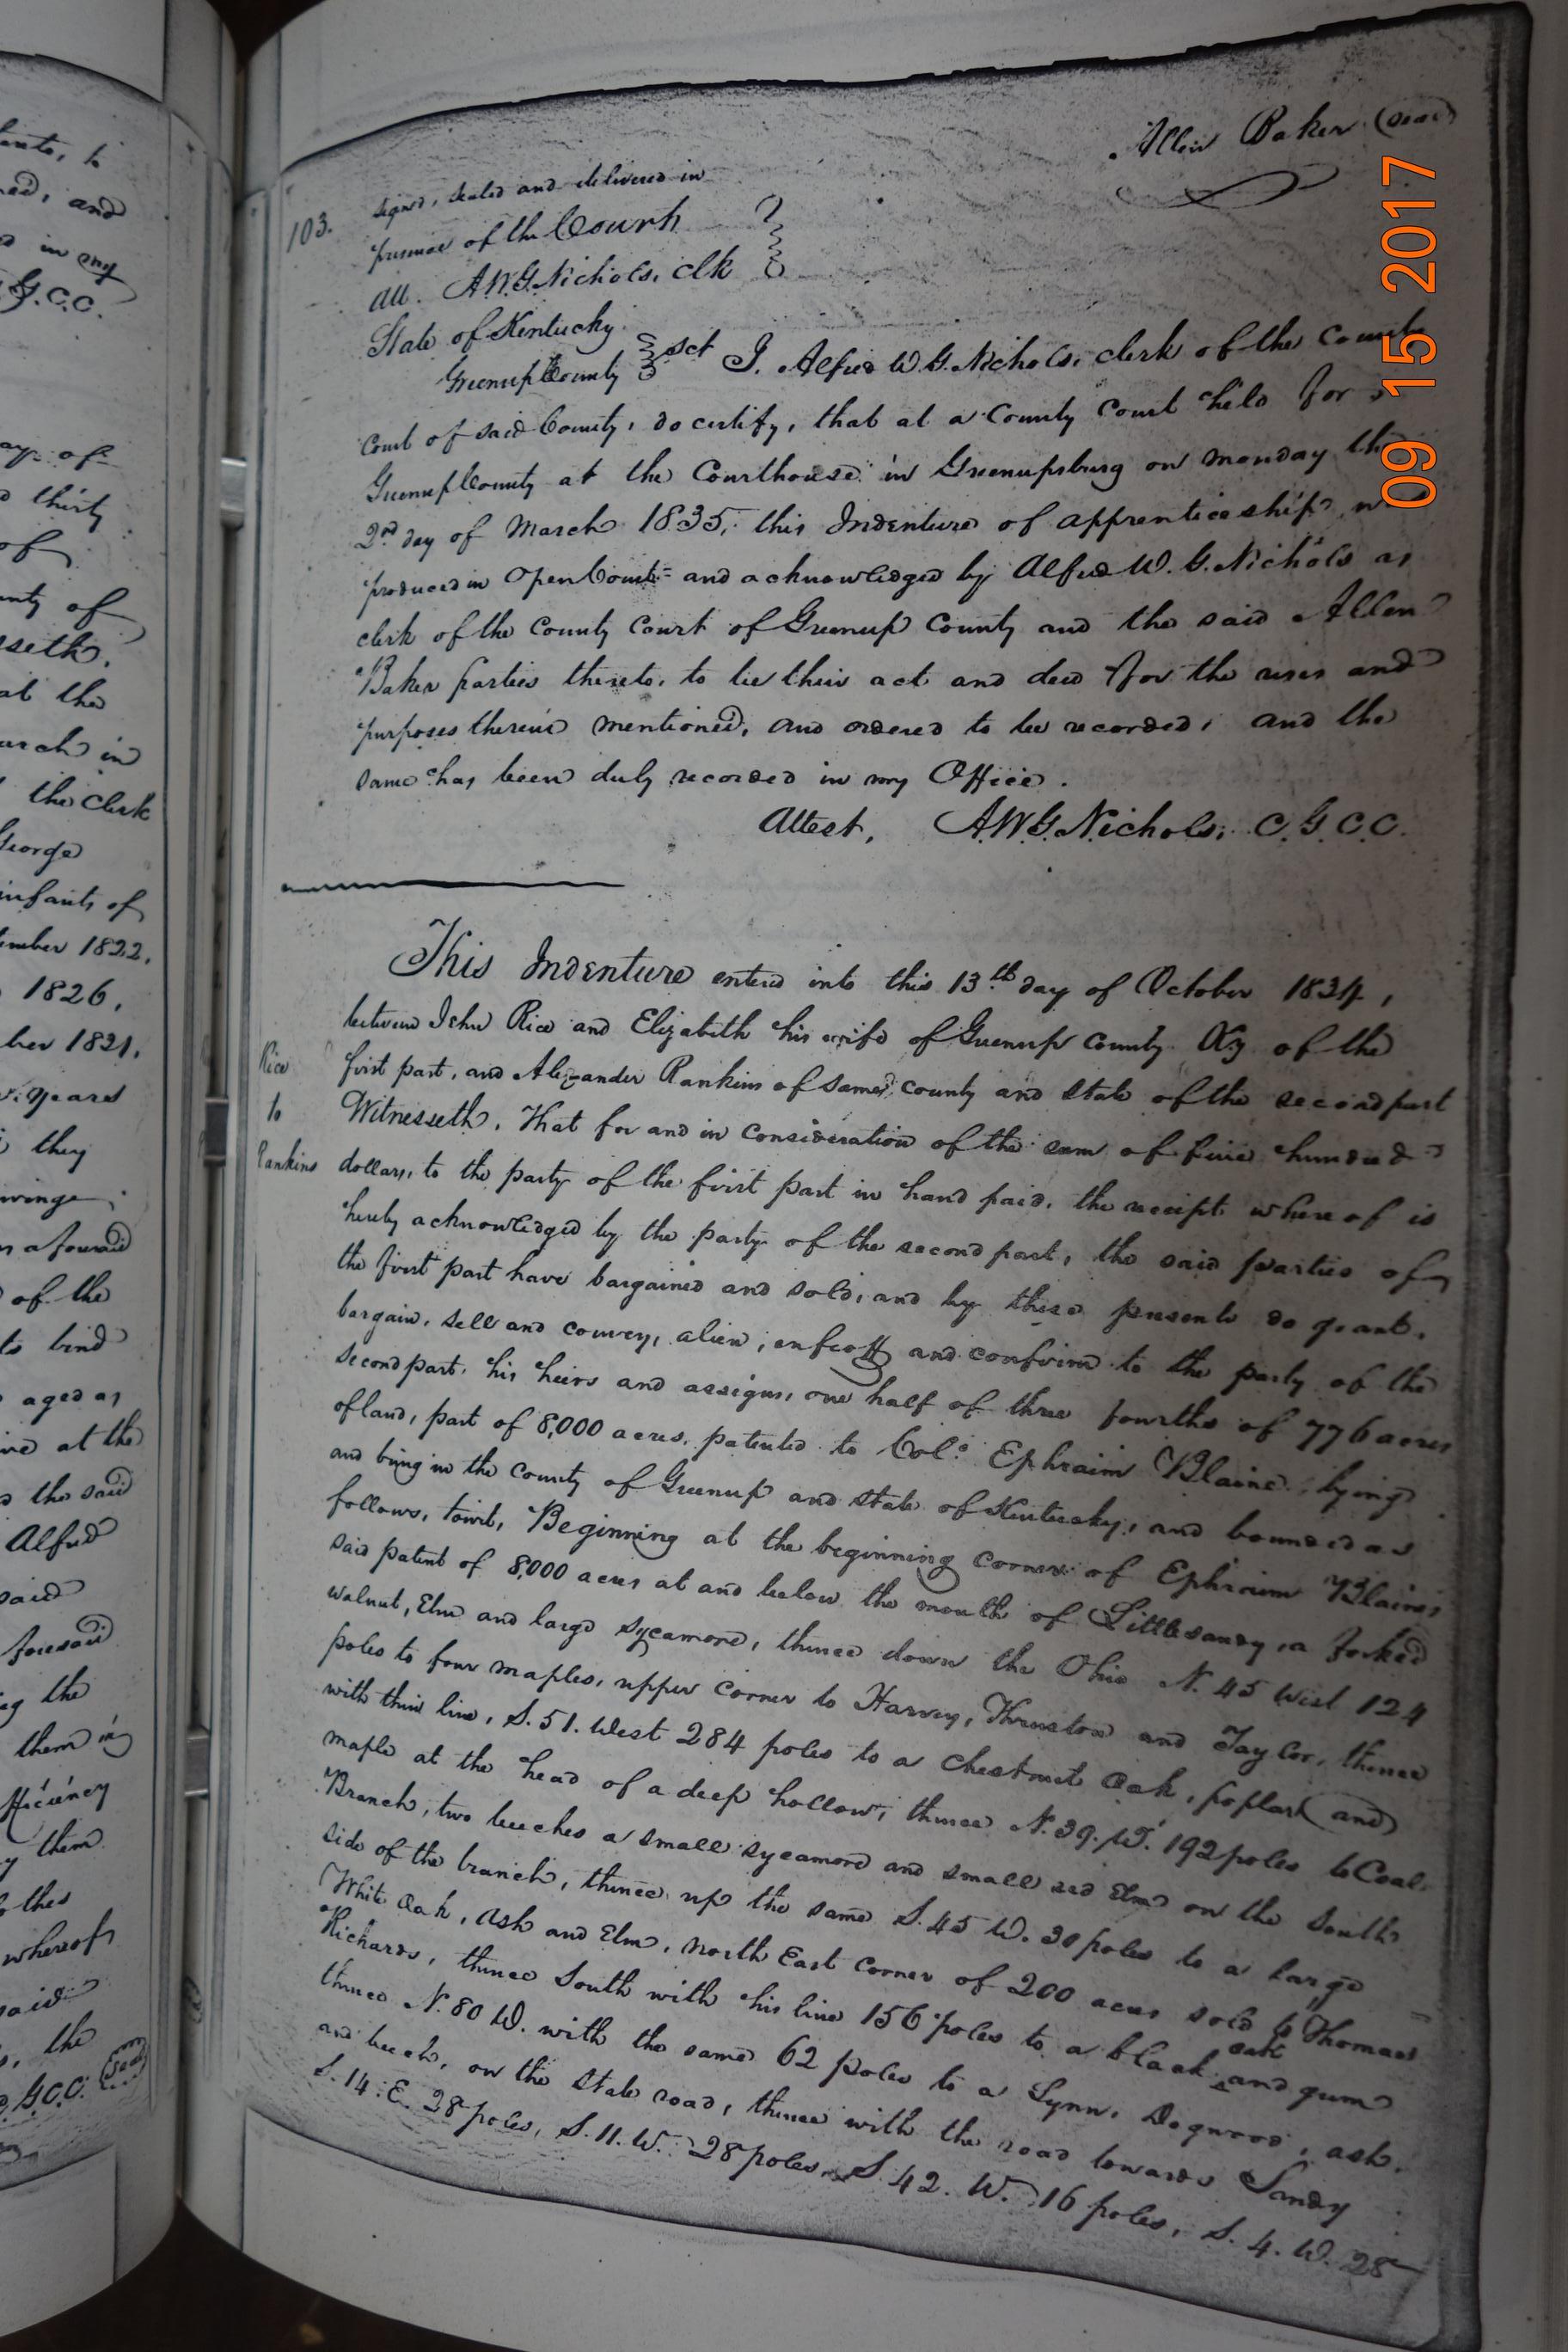 ants, to
ed, and
in my
G.C.C.
ay of
thirty
of
nty of
sseth.
at the
arch in
the Clerk
George
infants of
ember 1822.
1826.
ber 1821.
years
they
aforesaid
of the
to bind
aged as
at the
the said
Alfred
said
foresaid
the
them in
fficiency
them
thes
whereof
said
the
G.C.C. (Seal)
Allen Baker (Seal)
103.
signed, sealed and delivered in
presence of the Court
Att. A.W.G. Nichols, clk
State of Kentucky
Greenup County sct I. Alfred W. G. Nichols, clerk of the County
Court of said County, do certify, that at a County Court held for
Greenup County at the Courthouse in Greenupsburg on monday the
2nd day of March 1835, this Indenture of apprenticeship w
produced in Open Court= and acknowledged by Alfred W. G. Nichols as
clerk of the County Court of Greenup County and the said Allen
Baker parties thereto, to be their act and deed for the uses and
purposes therein mentioned, and ordered to be recorded, and the
same has been duly recorded in my Office.
Attest, A.W.G. Nichols, C.G.C.C.
This Indenture entered into this 13th day of October 1834,
between John Rice and Elizabeth his wife of Greenup County Ky of the
Rice
first part, and Alexander Rankins of same county and state of the second part
to
Witnesseth, That for and in consideration of the sum of five hundred
Rankins
dollars, to the party of the first part in hand paid, the receipt whereof is
hereby acknowledged by the party of the second part, the said parties of
the first part have bargained and sold, and by these presents do grant,
bargain, sell and convey, alien, enfeoff and confirm to the party of the
second part, his heirs and assigns, one half of three fourths of 776 acres
of land, part of 8,000 acres, patented to Col. Ephraim Blaine, lying
and being in the county of Greenup and state of Kentucky, and bounded as
follows, towit, Beginning at the beginning corner of Ephraim Blains,
said patent of 8,000 acres at and below the mouth of Little sandy, a forked
walnut, Elm and large sycamore, thence down the Ohio N. 45 West 124
poles to four maples, upper corner to Harvey, Thruston and Taylor, thence
with their line, S. 51. West 284 poles to a Chestnut Oak, poplar and
maple at the head of a deep hollow, thence N. 39. W. 192 poles to Coal
Branch, two beeches a small sycamore and small red Elm on the South
side of the branch, thence up the same S. 45 W. 30 poles to a large
White Oak, Ash and Elm, north East Corner of 200 acres sold to Thomas
Richards, thence South with his line 156 poles to a black oak and gum
thence N. 80 W. with the same 62 poles to a Lynn, Dogwood, ash,
and beech, on the State road, thence with the road towards Sandy
S. 14. E. 28 poles, S. 11. W. 28 poles, S. 42. W. 16 poles, S. 4. W. 28
09 15 2017